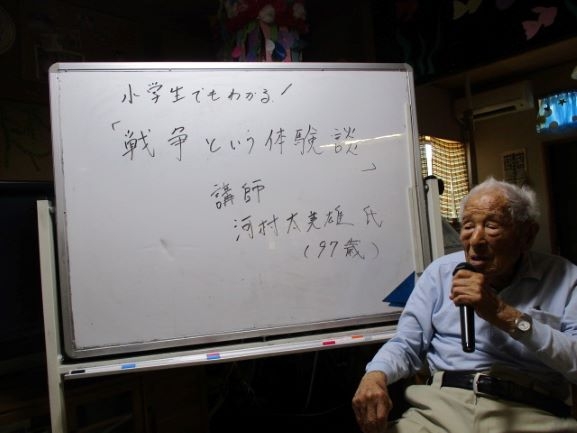 小学生でもわかる!
「戦争という体験談」
講師
河村太美雄 氏
(97歳)